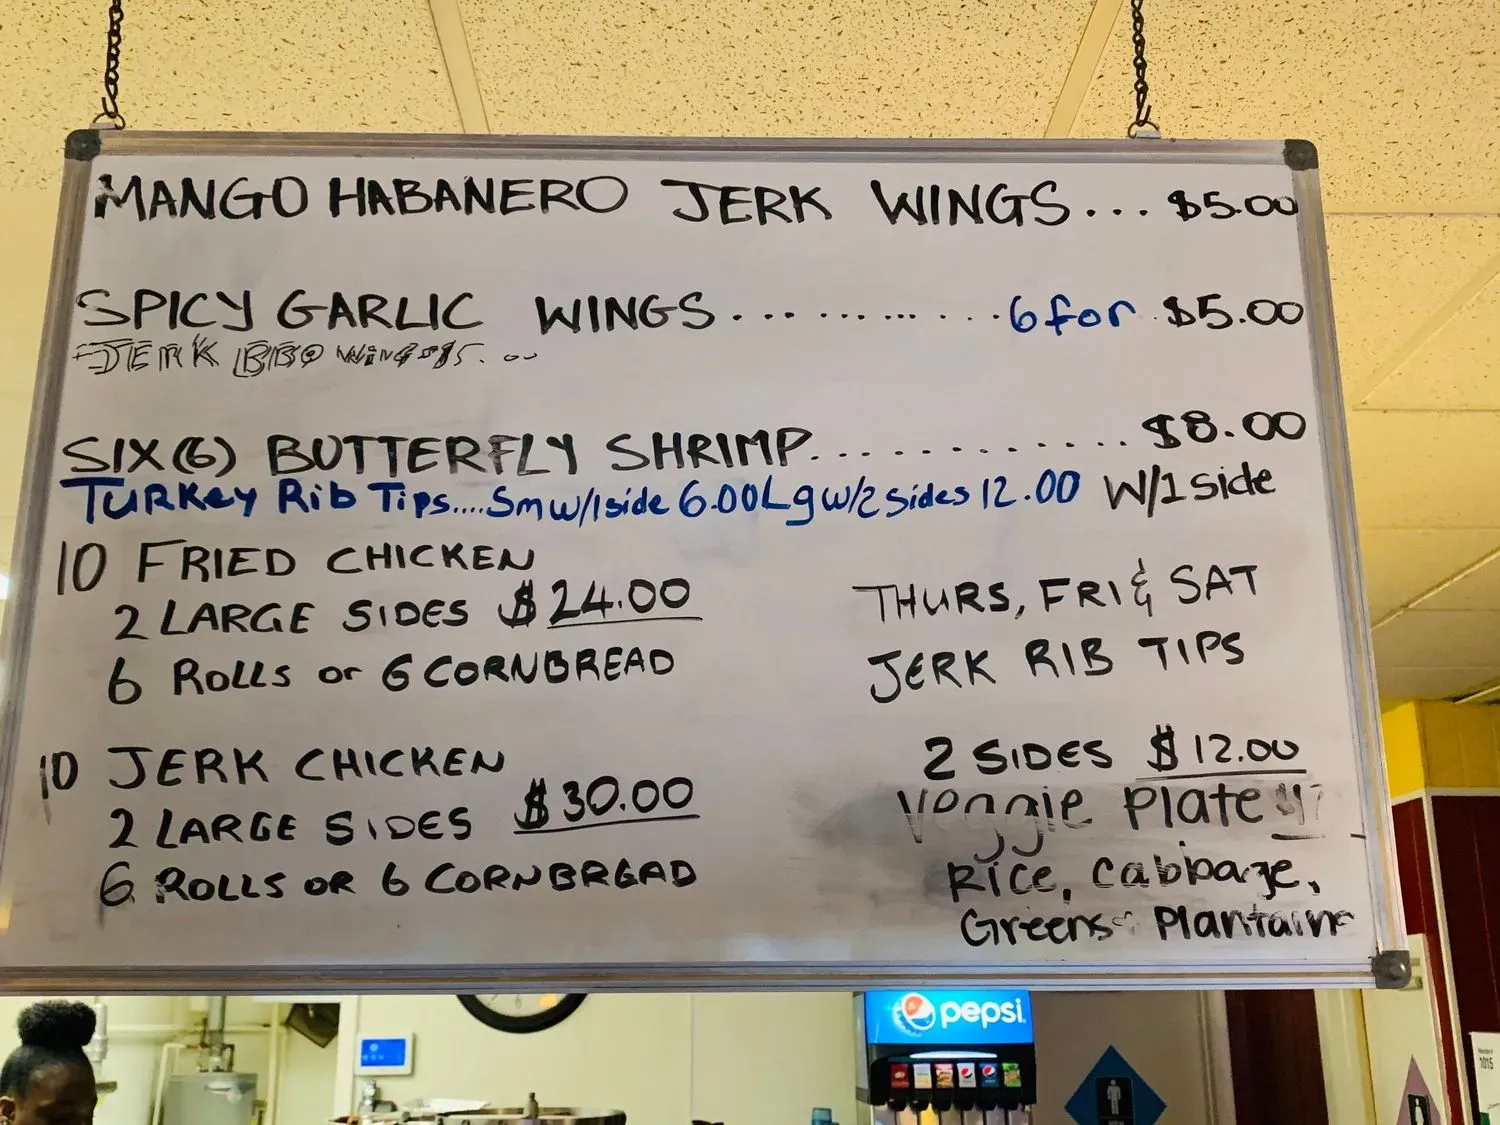 MANGO HABANERO JERK WINGS... $5.00
SPICY GARLIC WINGS............ 6 for $5.00
JERK BBQ WINGS
SIX (6) BUTTERFLY SHRIMP............ $8.00
W/1 Side
Turkey Rib Tips....Sm w/1side 6.00 Lg w/2 sides 12.00
10 FRIED CHICKEN
2 LARGE SIDES $24.00
6 ROLLS or 6 CORNBREAD
10 JERK CHICKEN
2 LARGE SIDES $30.00
6 ROLLS OR 6 CORNBREAD
THURS, FRI & SAT
JERK RIB TIPS
2 SIDES $12.00
Veggie Plate
Rice, Cabbage,
Greens Plantains
pepsi
1015